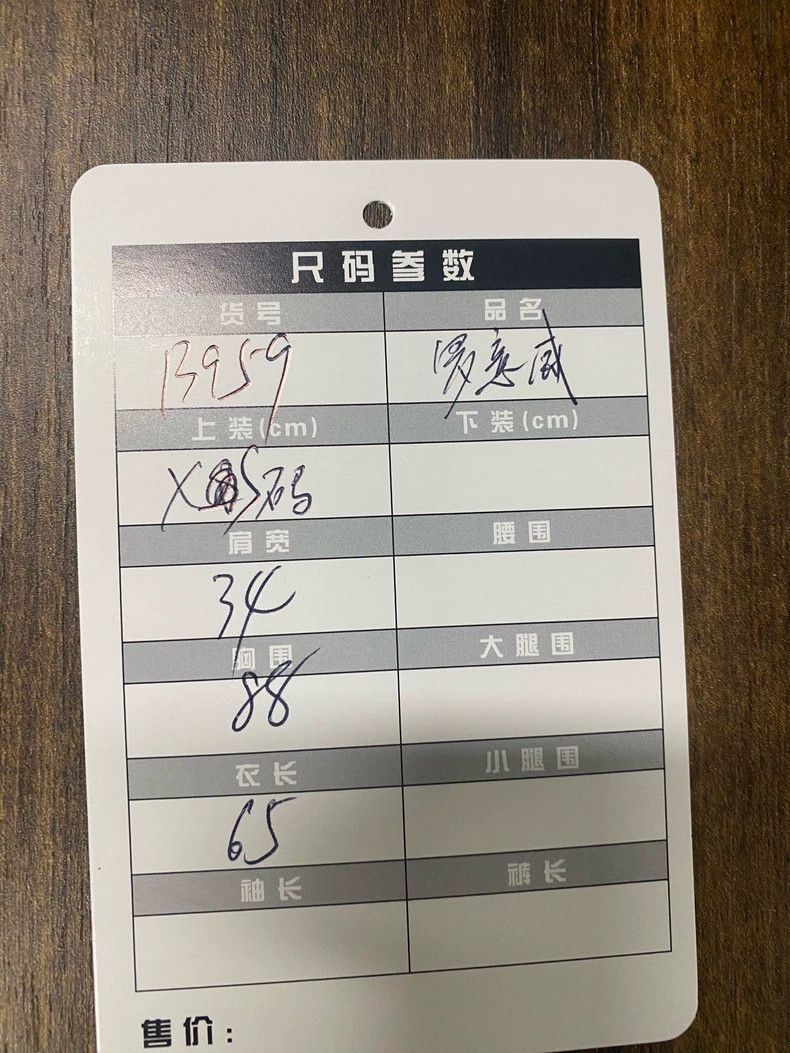 尺码参数
货号 品名
B959
上装(cm) 下装(cm)
XS码
肩宽 腰围
34
胸围 大腿围
88
衣长 小腿围
65
袖长 裤长
售价: